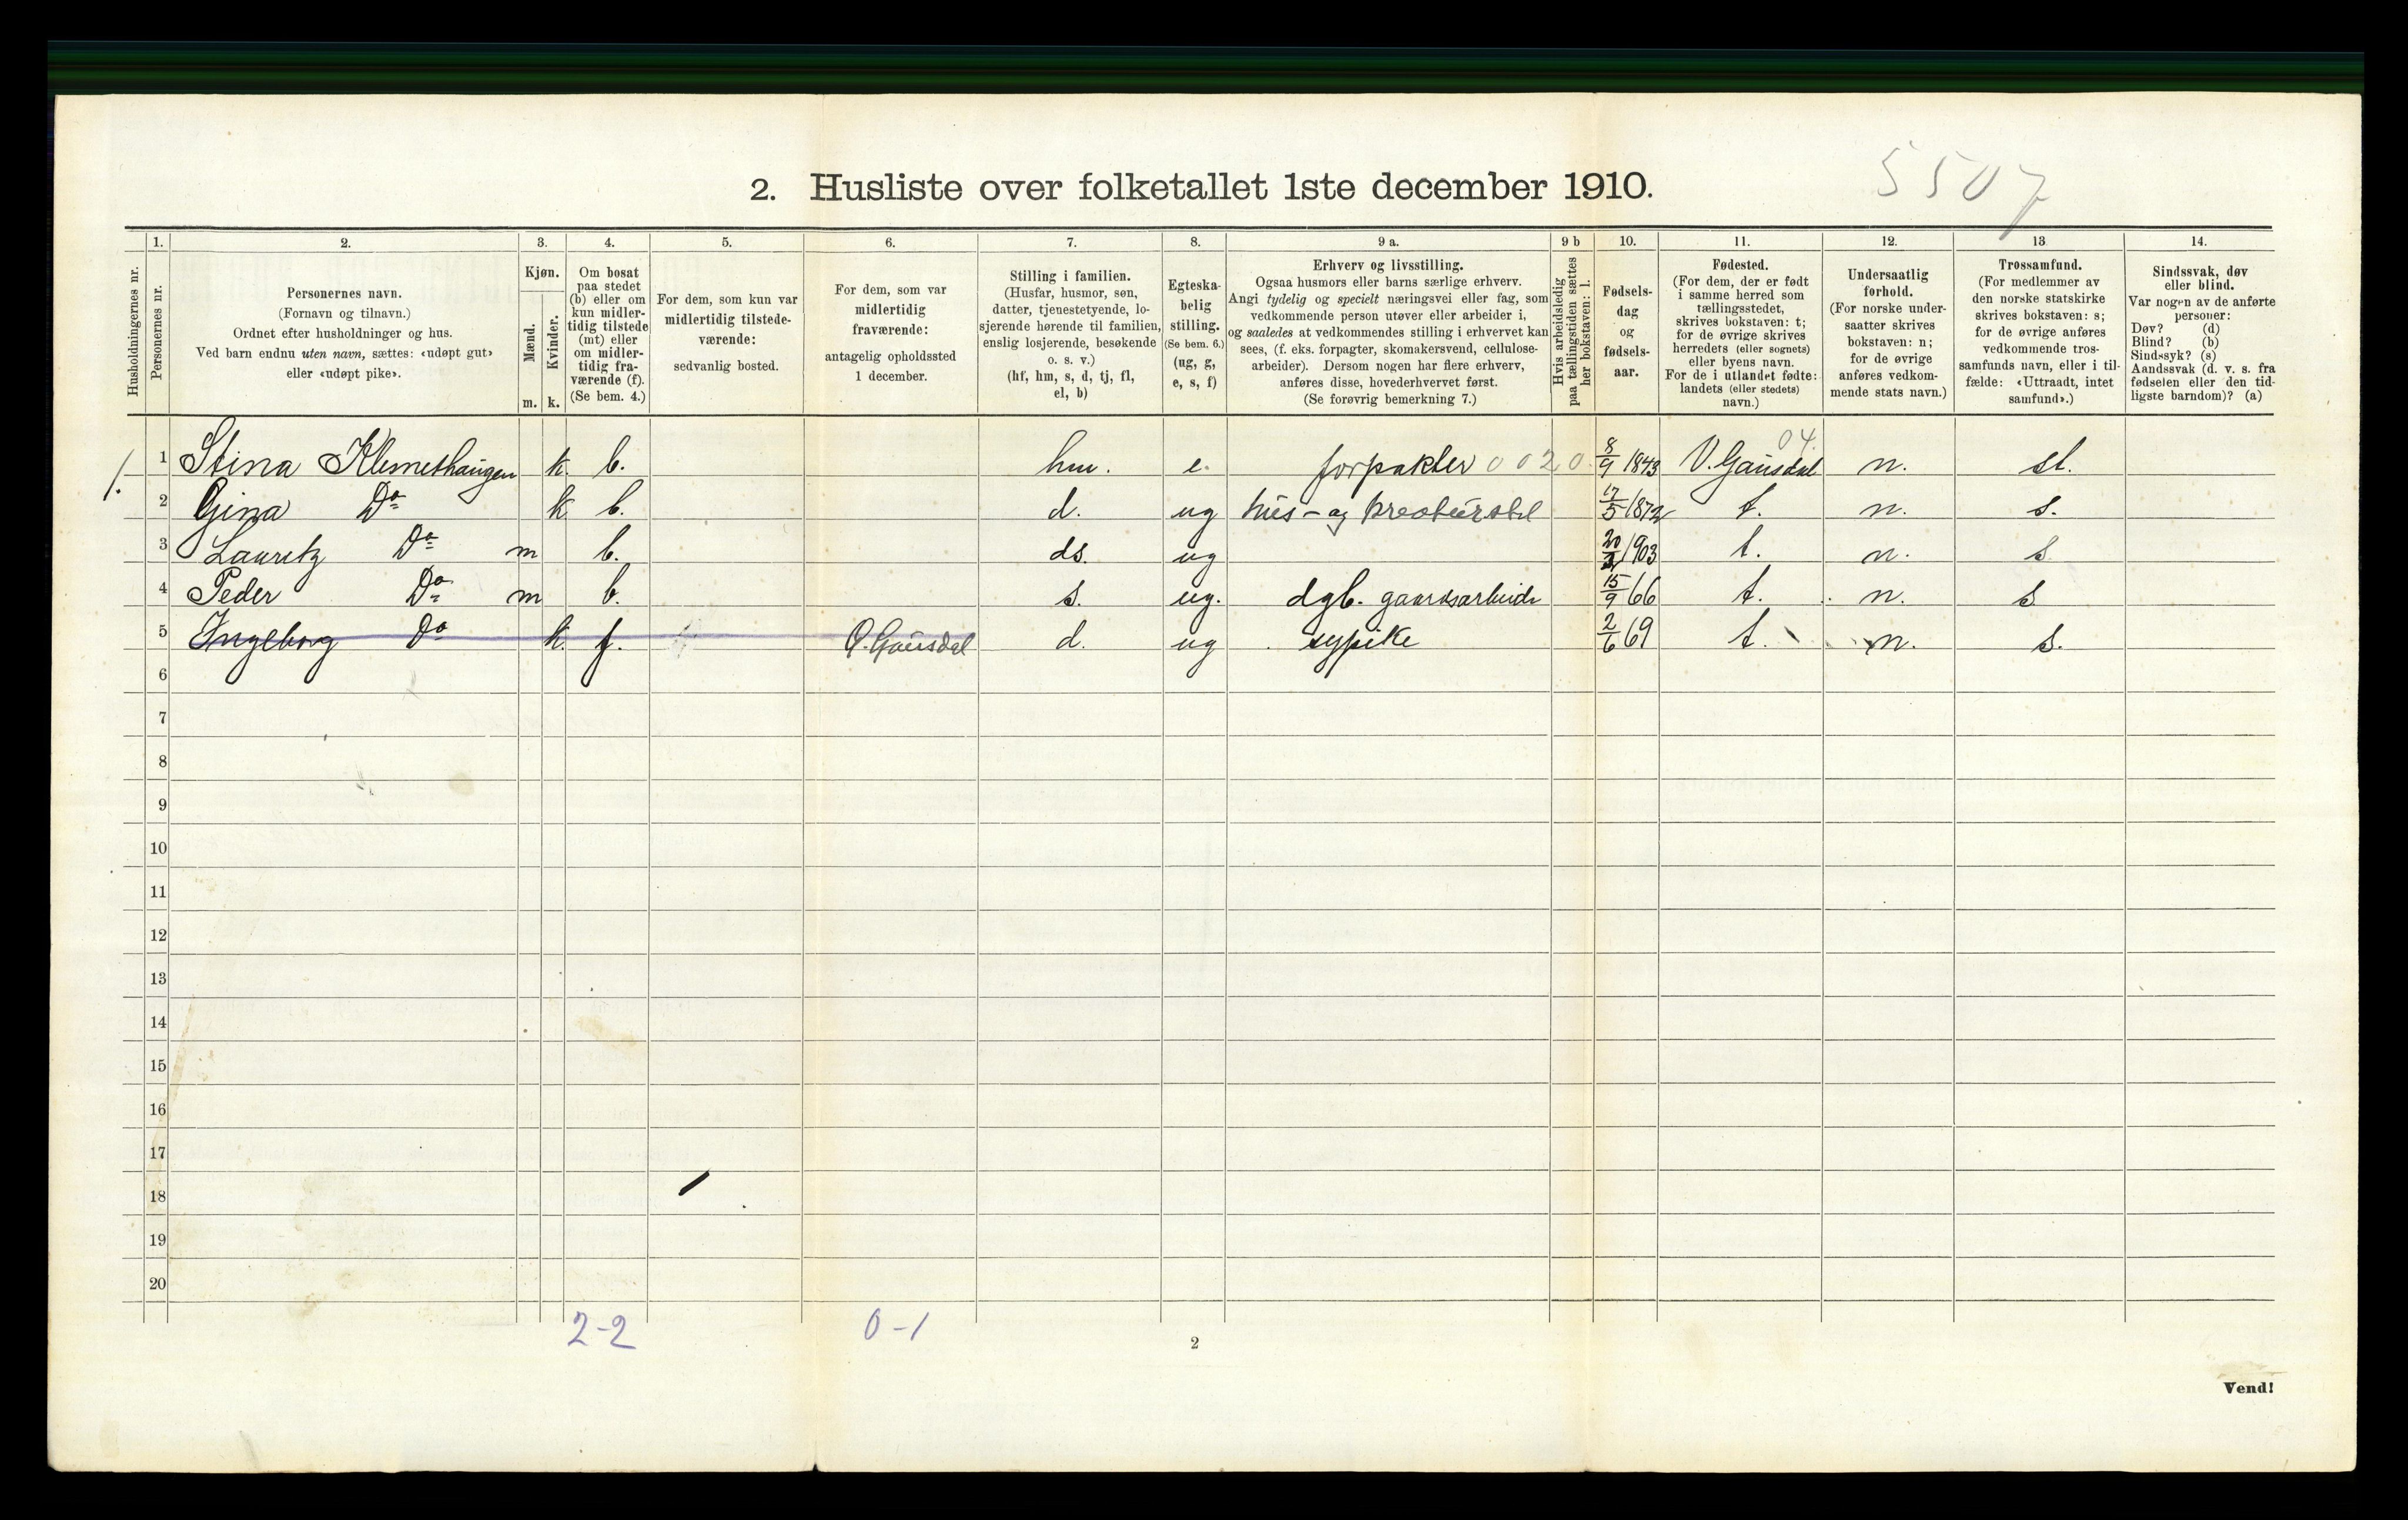 5507
2. Husliste over folketallet 1ste december 1910.
Husholdningernes nr.
1.
Personernes nr.
2.
Personernes navn.
(Fornavn og tilnavn.)
Ordnet efter husholdninger og hus.
Ved barn endnu uten navn, sættes: «udøpt gut»
eller «udøpt pike».
3.
Kjøn.
Mænd.
Kvinder.
m. k.
4.
Om bosat
paa stedet
(b) eller om
kun midler-
tidig tilstede
(mt) eller
om midler-
tidig fra-
værende (f).
(Se bem. 4.)
5.
For dem, som kun var
midlertidig tilstede-
værende:
sedvanlig bosted.
6.
For dem, som var
midlertidig
fraværende:
antagelig opholdssted
1 december.
7.
Stilling i familien.
(Husfar, husmor, søn,
datter, tjenestetyende, lo-
sjerende hørende til familien,
enslig losjerende, besøkende
o. s. v.)
(hf, hm, s, d, tj, fl,
el, b)
8.
Egteska-
belig
stilling.
(Se bem. 6.)
(ug, g,
e, s, f)
9 a.
Erhverv og livsstilling.
Ogsaa husmors eller barns særlige erhverv.
Angi tydelig og specielt næringsvei eller fag, som
vedkommende person utøver eller arbeider i,
og saaledes at vedkommendes stilling i erhvervet kan
sees, (f. eks. forpagter, skomakersvend, cellulose-
arbeider). Dersom nogen har flere erhverv,
anføres disse, hovederhvervet først.
(Se forøvrig bemerkning 7.)
9 b
Hvis arbeidsledig
paa tællingstiden sættes
her bokstaven: l.
10.
Fødsels-
dag
og
fødsels-
aar.
11.
Fødested.
(For dem, der er født
i samme herred som
tællingsstedet,
skrives bokstaven: t;
for de øvrige skrives
herredets (eller sognets)
eller byens navn.
For de i utlandet fødte:
landets (eller stedets)
navn.)
12.
Undersaatlig
forhold.
(For norske under-
saatter skrives
bokstaven: n;
for de øvrige
anføres vedkom-
mende stats navn.)
13
Trossamfund.
(For medlemmer av
den norske statskirke
skrives bokstaven: s;
for de øvrige anføres
vedkommende tros-
samfunds navn, eller i til-
fælde: «Uttraadt, intet
samfund».)
14.
Sindssvak, døv
eller blind.
Var nogen av de anførte
personer:
Døv? (d)
Blind? (b)
Sindssyk? (s)
Aandssvak (d. v. s. fra
fødselen eller den tid-
ligste barndom)? (a)
04.
1. 1 Stina Klemethaugen k. b. hm. e. forpakter 0020 8/9 1843 V. Gausdal n. st.
2 Gina Do k b. d. ug hus- og kreaturstel 17/5 1872 t. n. s.
3 Lauritz Do m b. ds. ug 20/3 1903 t. n. s
4 Peder Do m b. s. ug. dgb. gaardsarbeide 15/9 66 t. n. s
5 Ingeborg Do k. f. Ø. Gausdal d. ug sypike 2/6 69 t. n. s.
6
7
8
9
10
11
12
13
14
15
16
17
18
19
20
2-2 0-1
2
Vend!